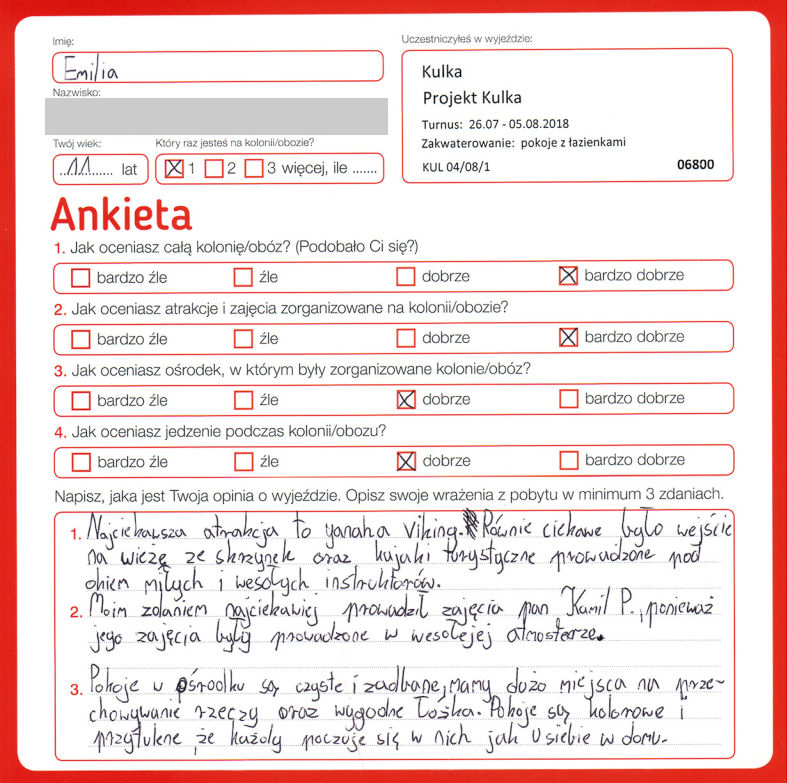 Imię:
Uczestniczyłeś w wyjeździe:
Emilia
Kulka
Projekt Kulka
Nazwisko:
Turnus: 26.07 - 05.08.2018
Zakwaterowanie: pokoje z łazienkami
KUL 04/08/1 06800
Twój wiek: Który raz jesteś na kolonii/obozie?
..11...... lat 1 2 3 więcej, ile .......
Ankieta
1. Jak oceniasz całą kolonię/obóz? (Podobało Ci się?)
bardzo źle źle dobrze bardzo dobrze
2. Jak oceniasz atrakcje i zajęcia zorganizowane na kolonii/obozie?
bardzo źle źle dobrze bardzo dobrze
3. Jak oceniasz ośrodek, w którym były zorganizowane kolonie/obóz?
bardzo źle źle dobrze bardzo dobrze
4. Jak oceniasz jedzenie podczas kolonii/obozu?
bardzo źle źle dobrze bardzo dobrze
Napisz, jaka jest Twoja opinia o wyjeździe. Opisz swoje wrażenia z pobytu w minimum 3 zdaniach.
1. Najciekawsza atrakcja to yanaha viking. Równie ciekawe było wejście
na wieżę ze skrzynek oraz kajaki turystyczne prowadzone pod
okiem miłych i wesołych instruktorów.
2. Moim zdaniem najciekawiej prowadził zajęcia pan Kamil P., ponieważ
jego zajęcia były prowadzone w wesołejej atmosferze.
3. Pokoje w ośrodku są czyste i zadbane, mamy dużo miejsca na prze-
chowywanie rzeczy oraz wygodne łóżka. Pokoje są kolorowe i
przytulene, że każdy poczuje się w nich jak u siebie w domu.